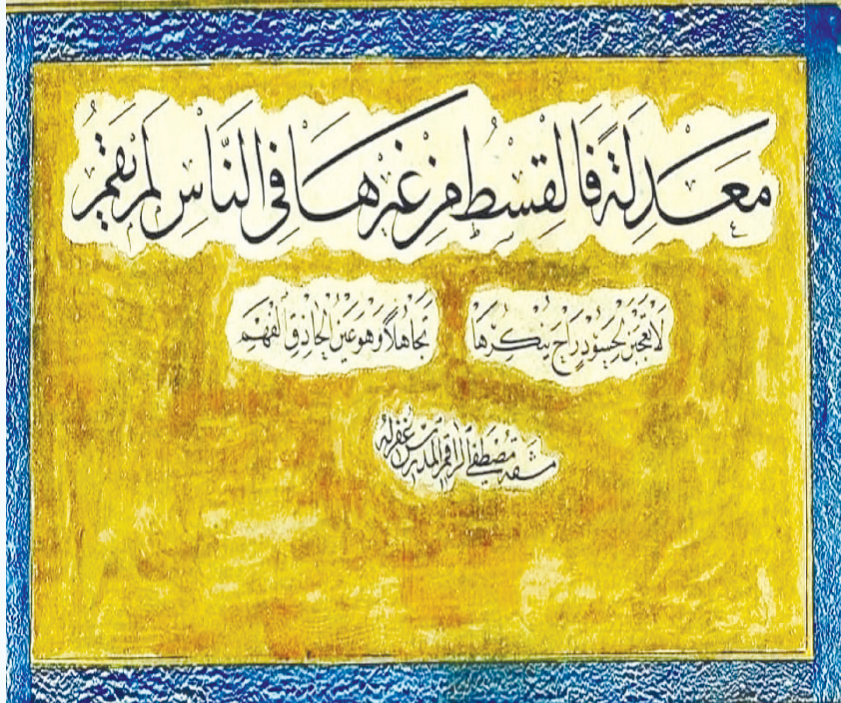 مَعْدِلَةً فَالْقِسْطُ مِنْ غَيْرِهَا فِي النَّاسِ لَمْ يَقُمِ
لَا تَعْجَبَنْ لِحَسُودٍ رَاحَ يُنْكِرُهَا تَجَاهُلًا وَهُوَ عَيْنُ الْحَاذِقِ الْفَهِمِ
مشقه مصطفى الراقم المدرس غفر له